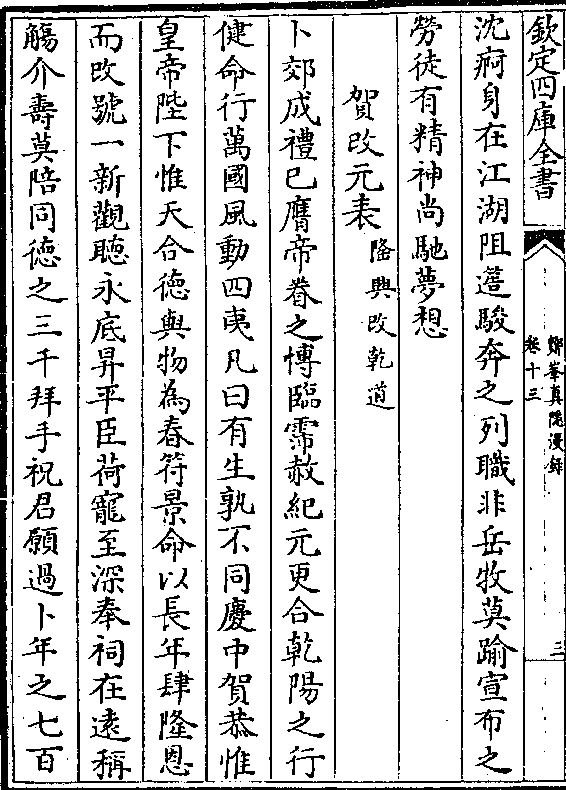 欽定四庫全書
鄮峯真隱漫録
卷十三
三
沈痾身在江湖阻造駿奔之列職非岳牧莫踰宣布之
勞徒有精神尚馳夢想
賀改元表隆興改乾道
卜郊成禮已膺帝眷之博臨霈赦紀元更合乾陽之行
健命行萬國風動四夷凡曰有生孰不同慶中賀恭惟
皇帝陛下惟天合德與物為春符景命以長年肆隆恩
而改號一新觀聽永底昇平臣荷寵至深奉祠在逺稱
觴介壽莫陪同德之三千拜手祝君願過卜年之七百